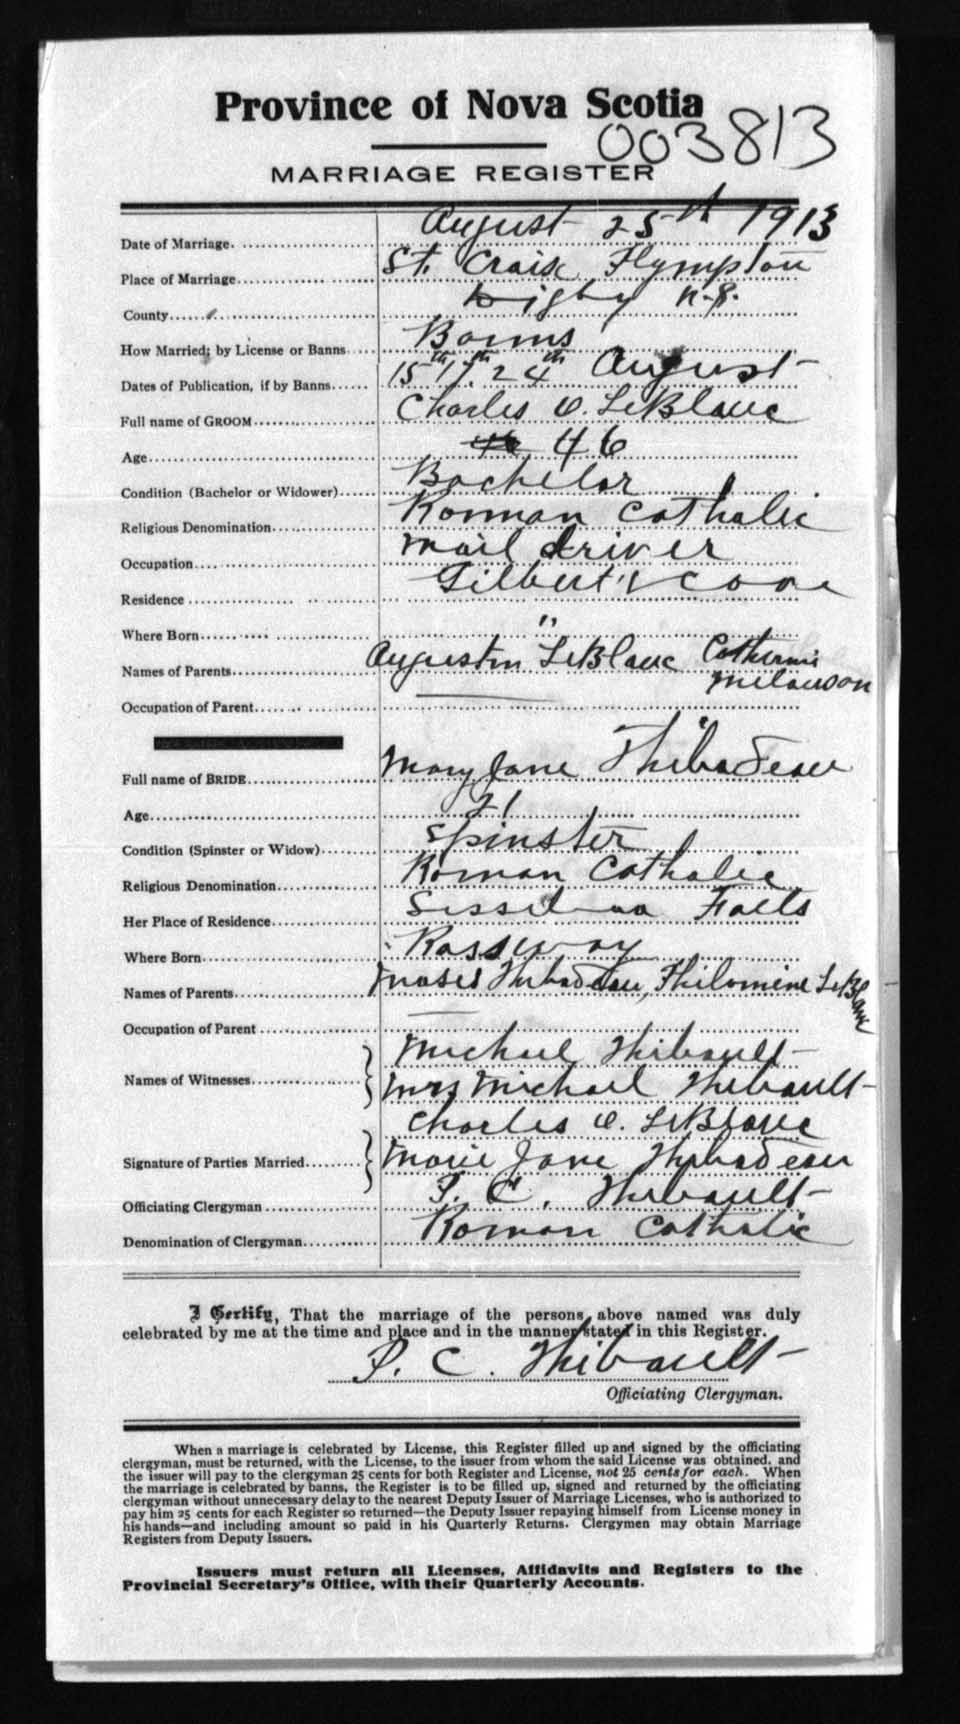 Province of Nova Scotia
003813
MARRIAGE REGISTER
Date of Marriage. August 25th 1913
Place of Marriage St. Croix Plympton
County Digby N.S.
How Married; by License or Banns Banns
Dates of Publication, if by Banns 15th 17th 24th August
Full name of GROOM Charles O. LeBlanc
Age 46
Condition (Bachelor or Widower) Bachelor
Religious Denomination Roman Catholic
Occupation mail driver
Residence Gilbert's Cove
Where Born "
Names of Parents Augustin LeBlanc Catherine Melanson
Occupation of Parent
Full name of BRIDE Mary Jane Thibadeau
Age 21
Condition (Spinster or Widow) Spinster
Religious Denomination Roman Catholic
Her Place of Residence Sissiboo Falls
Where Born Rossway
Names of Parents Moses Thibadeau, Philomene LeBlanc
Occupation of Parent
Names of Witnesses Michael Thibault
Mrs Michael Thibault
Signature of Parties Married Charles O. LeBlanc
Marie Jane Thibadeau
Officiating Clergyman P. C. Thibault
Denomination of Clergyman Roman Catholic
I Certify, That the marriage of the persons above named was duly
celebrated by me at the time and place and in the manner stated in this Register.
P. C. Thibault
Officiating Clergyman.
When a marriage is celebrated by License, this Register filled up and signed by the officiating
clergyman, must be returned, with the License, to the issuer from whom the said License was obtained, and
the issuer will pay to the clergyman 25 cents for both Register and License, not 25 cents for each. When
the marriage is celebrated by banns, the Register is to be filled up, signed and returned by the officiating
clergyman without unnecessary delay to the nearest Deputy Issuer of Marriage Licenses, who is authorized to
pay him 25 cents for each Register so returned—the Deputy Issuer repaying himself from License money in
his hands—and including amount so paid in his Quarterly Returns. Clergymen may obtain Marriage
Registers from Deputy Issuers.
Issuers must return all Licenses, Affidavits and Registers to the
Provincial Secretary's Office, with their Quarterly Accounts.